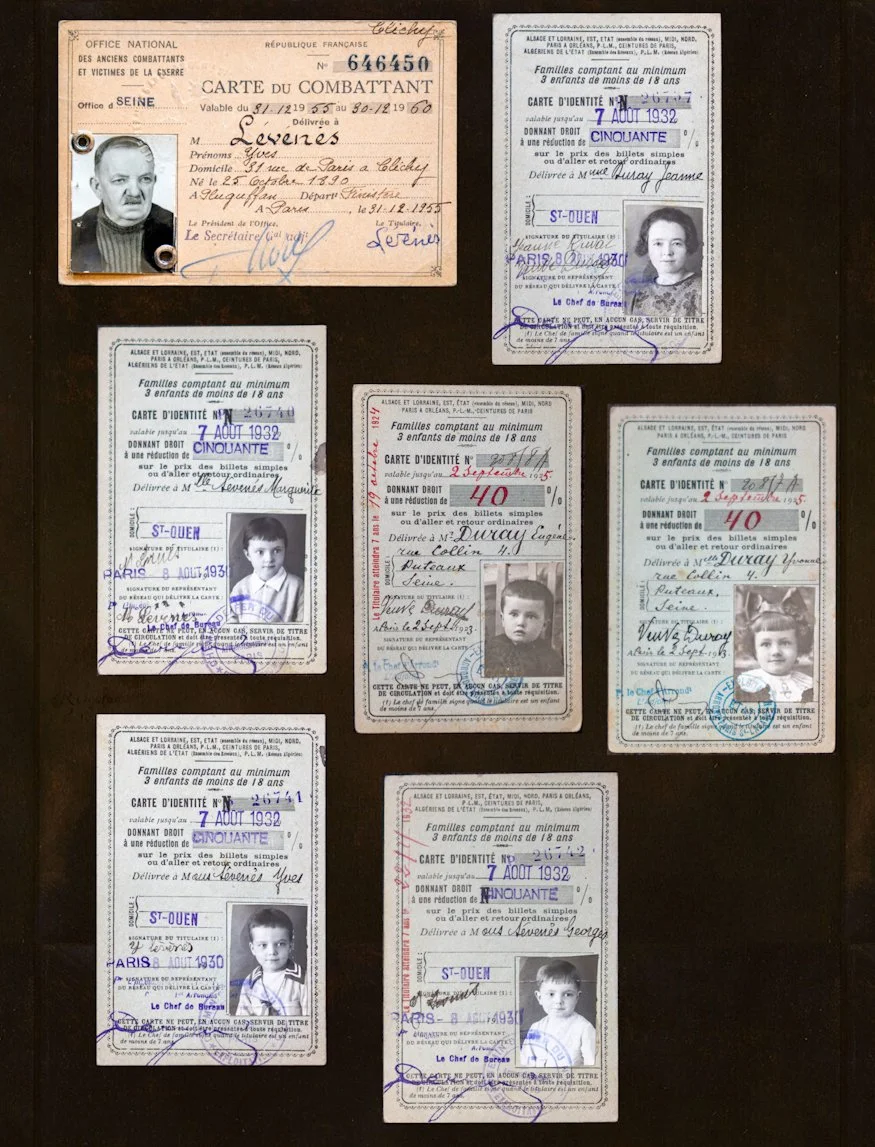 Clichy
OFFICE NATIONAL
DES ANCIENS COMBATTANTS
ET VICTIMES DE LA GUERRE
Office d SEINE
RÉPUBLIQUE FRANÇAISE
No 646450
CARTE DU COMBATTANT
Valable du 31.12.1955 au 30-12 1960
Délivrée à
M Levenès
Prénoms Yves
Domicile 31 rue de Paris a Clichy
Né le 25 Octobre 1890
A Pluguffan Départt Finistère
A Paris, le 31-12-1955
Le Président de l'Office,
Le Secrétaire Gal adjt
Le Titulaire,
Levenès
ALSACE ET LORRAINE, EST, ÉTAT (ensemble du réseau), MIDI, NORD,
PARIS A ORLÉANS, P.L.M., CEINTURES DE PARIS,
ALGÉRIENS DE L'ÉTAT (Ensemble des Réseaux), P.L.M. (Réseau Algérien)
Familles comptant au minimum
3 enfants de moins de 18 ans
CARTE D'IDENTITÉ No N
valable jusqu'au 7 AOUT 1932
DONNANT DROIT
à une réduction de CINQUANTE %
sur le prix des billets simples
ou d'aller et retour ordinaires
Délivrée à Mme Duray Jeanne
DOMICILE:
ST-OUEN
SIGNATURE DU TITULAIRE (1):
PARIS 8 AOUT 1930
SIGNATURE DU REPRÉSENTANT
DU RÉSEAU QUI DÉLIVRE LA CARTE
Le Chef de Bureau
CETTE CARTE NE PEUT, EN AUCUN CAS, SERVIR DE TITRE
DE CIRCULATION et doit être présentée à toute réquisition.
(1) Le Chef de famille signe quand le titulaire est un enfant
de moins de 7 ans.
ALSACE ET LORRAINE, EST, ÉTAT (ensemble du réseau), MIDI, NORD,
PARIS A ORLÉANS, P.L.M., CEINTURES DE PARIS,
ALGÉRIENS DE L'ÉTAT (Ensemble des Réseaux), P.L.M. (Réseau Algérien)
Familles comptant au minimum
3 enfants de moins de 18 ans
CARTE D'IDENTITÉ No N 26740
valable jusqu'au 7 AOUT 1932
DONNANT DROIT
à une réduction de CINQUANTE %
sur le prix des billets simples
ou d'aller et retour ordinaires
Délivrée à Mlle Levenès Marguerite
DOMICILE:
ST-OUEN
SIGNATURE DU TITULAIRE (1):
PARIS 8 AOUT 1930
SIGNATURE DU REPRÉSENTANT
DU RÉSEAU QUI DÉLIVRE LA CARTE:
Le Chef de Bureau
CETTE CARTE NE PEUT, EN AUCUN CAS, SERVIR DE TITRE
DE CIRCULATION et doit être présentée à toute réquisition.
(1) Le Chef de famille signe quand le titulaire est un enfant
de moins de 7 ans.
Le titulaire atteindra 7 ans le 19 octobre 1924
ALSACE ET LORRAINE, EST, ÉTAT (ensemble du réseau), MIDI, NORD
PARIS A ORLÉANS, P.L.M., CEINTURES DE PARIS
Familles comptant au minimum
3 enfants de moins de 18 ans
CARTE D'IDENTITÉ No
valable jusqu'au 2 Septembre 1925.
DONNANT DROIT
à une réduction de 40 %
sur le prix des billets simples
ou d'aller et retour ordinaires
Délivrée à Mr Duray Eugène
DOMICILE
rue Collin 4.
Puteaux.
Seine.
SIGNATURE DU TITULAIRE (1):
Veuve Duray
A Paris le 2 Sept. 1923.
SIGNATURE DU REPRÉSENTANT
DU RÉSEAU QUI DÉLIVRE LA CARTE:
CETTE CARTE NE PEUT, EN AUCUN CAS, SERVIR DE TITRE
DE CIRCULATION et doit être présentée à toute réquisition.
(1) Le chef de famille signe pour les enfants
de moins de 7 ans.
ALSACE ET LORRAINE, EST, ÉTAT (ensemble du réseau), MIDI, NORD
PARIS A ORLÉANS, P.L.M., CEINTURES DE PARIS
Familles comptant au minimum
3 enfants de moins de 18 ans
CARTE D'IDENTITÉ No
valable jusqu'au 2 Septembre 1925.
DONNANT DROIT
à une réduction de 40 %
sur le prix des billets simples
ou d'aller et retour ordinaires
Délivrée à Mlle Duray Yvonne
DOMICILE
rue Collin 4.
Puteaux,
Seine.
SIGNATURE DU TITULAIRE
Veuve Duray
A Paris le 2 Sept. 1923.
SIGNATURE DU REPRÉSENTANT
DU RÉSEAU QUI DÉLIVRE LA CARTE:
CETTE CARTE NE PEUT, EN AUCUN CAS, SERVIR DE TITRE
DE CIRCULATION et doit être présentée à toute réquisition.
(1) Le chef de famille signe pour les enfants
de moins de 7 ans.
ALSACE ET LORRAINE, EST, ÉTAT (ensemble du réseau), MIDI, NORD,
PARIS A ORLÉANS, P.L.M., CEINTURES DE PARIS,
ALGÉRIENS DE L'ÉTAT (Ensemble des Réseaux), P.L.M. (Réseau Algérien)
Familles comptant au minimum
3 enfants de moins de 18 ans
CARTE D'IDENTITÉ No N 26741
valable jusqu'au 7 AOUT 1932
DONNANT DROIT
à une réduction de CINQUANTE %
sur le prix des billets simples
ou d'aller et retour ordinaires
Délivrée à Mous Levenès Yves
DOMICILE:
ST-OUEN
SIGNATURE DU TITULAIRE (1):
PARIS 8 AOUT 1930
SIGNATURE DU REPRÉSENTANT
Le Chef de Bureau
CETTE CARTE NE PEUT, EN AUCUN CAS, SERVIR DE TITRE
DE CIRCULATION et doit être présentée à toute réquisition.
(1) Le Chef de famille signe quand le titulaire est un enfant
de moins de 7 ans.
Le titulaire atteindra 7 ans le
ALSACE ET LORRAINE, EST, ÉTAT, MIDI, NORD, PARIS A ORLÉANS,
P.L.M., CEINTURES DE PARIS,
ALGÉRIENS DE L'ÉTAT (Ensemble des Réseaux), P.L.M. (Réseau Algérien)
Familles comptant au minimum
3 enfants de moins de 18 ans
CARTE D'IDENTITÉ No 26742
valable jusqu'au 7 AOUT 1932
DONNANT DROIT
à une réduction de CINQUANTE %
sur le prix des billets simples
ou d'aller et retour ordinaires
Délivrée à Mous Levenès Georges
DOMICILE:
ST-OUEN
SIGNATURE DU TITULAIRE (1):
PARIS - 8 AOUT 1930
SIGNATURE DU REPRÉSENTANT
DU RÉSEAU QUI DÉLIVRE LA CARTE:
Le Chef de Bureau
CETTE CARTE NE PEUT, EN AUCUN CAS, SERVIR DE TITRE
DE CIRCULATION et doit être présentée à toute réquisition.
(1) Le Chef de famille signe quand le titulaire est un enfant
de moins de 7 ans.